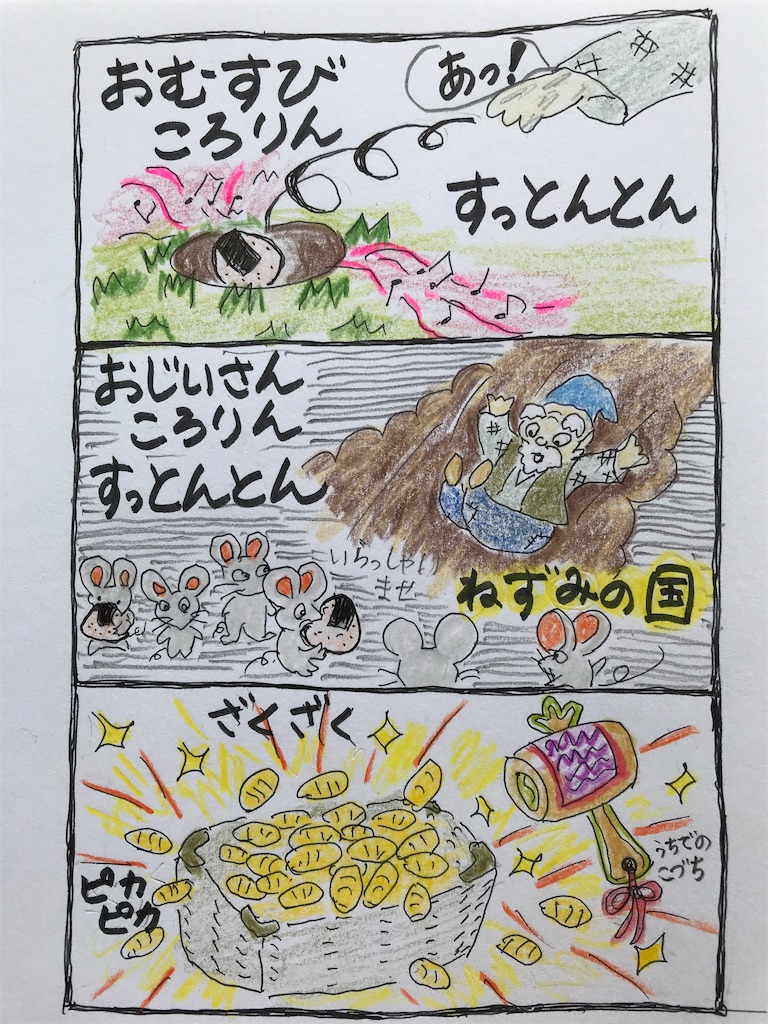 おむすび
ころりん
あっ!
すっとんとん
おじいさん
ころりん
すっとんとん
いらっしゃい
ませ
ねずみの国
ざくざく
ピカ
ピカ
うちでの
こづち